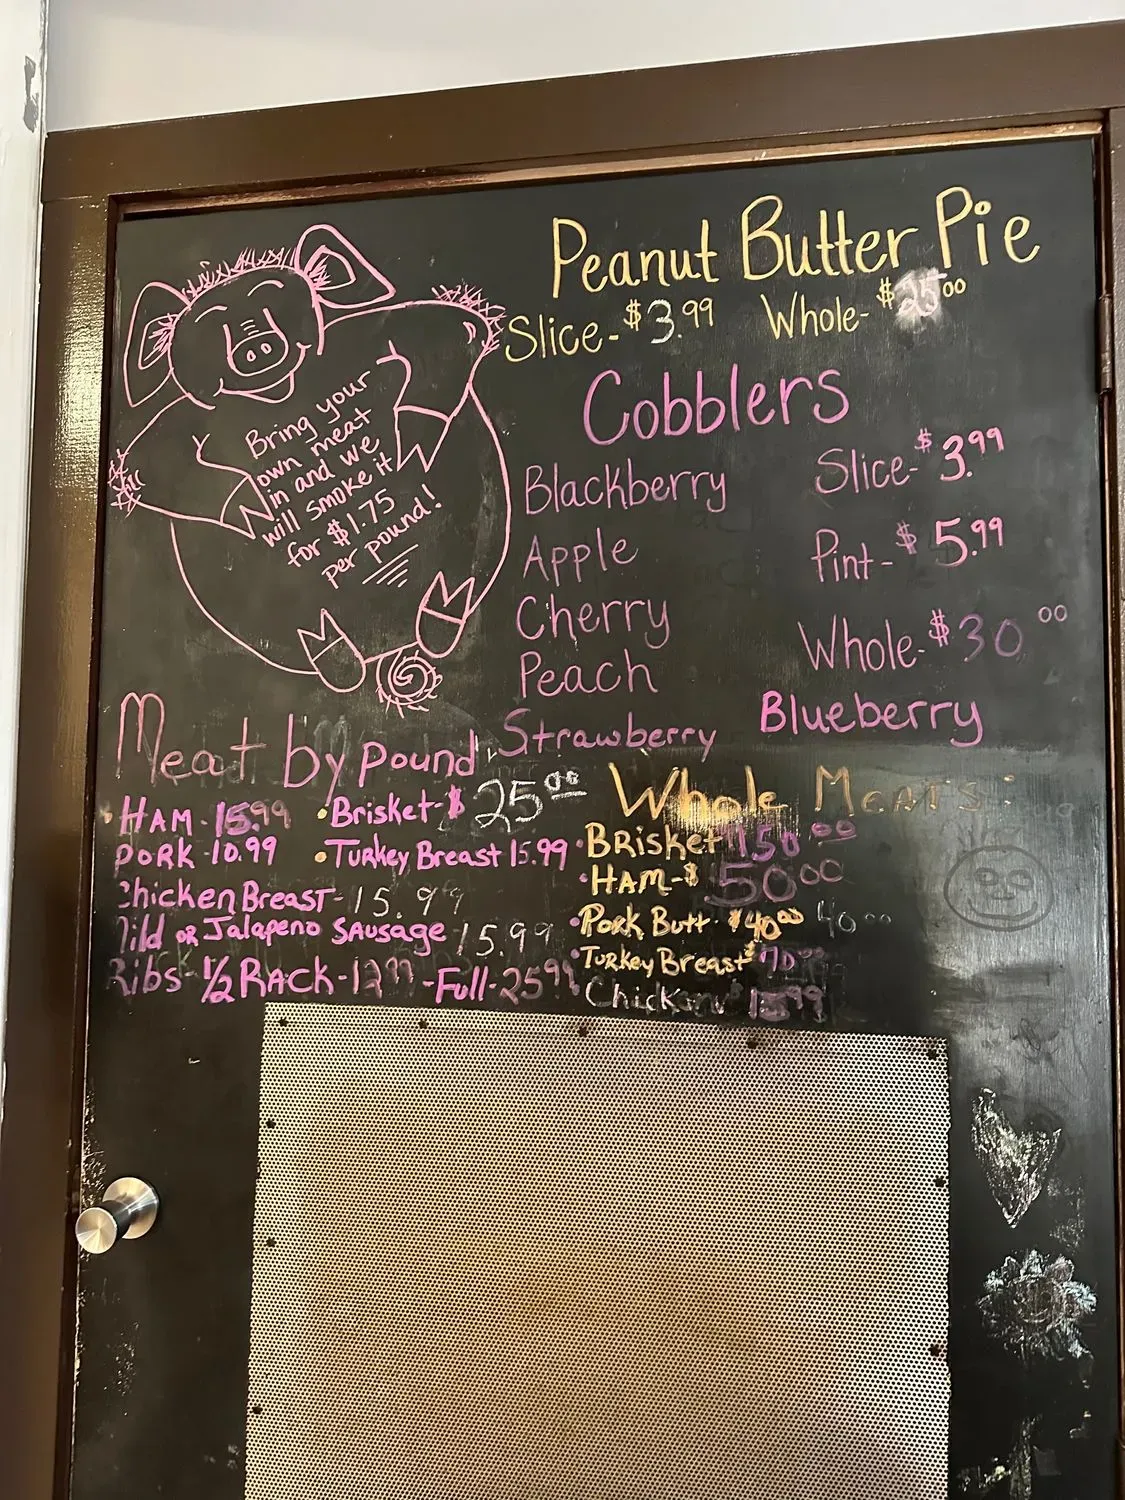 Peanut Butter Pie
Slice-$3.99 Whole-$25.00
Bring your
own meat
in and we
will smoke it
for $1.75
per pound!
Cobblers
Blackberry Slice-$3.99
Apple Pint-$5.99
Cherry Whole-$30.00
Peach
Strawberry Blueberry
Meat by Pound
• HAM-15.99 • Brisket-$25.00
PORK-10.99 • Turkey Breast 15.99
Chicken Breast-15.99
Mild or Jalapeno Sausage 15.99
Ribs-1/2 RACK-12.99-Full-25.99
Whole Meats:
• BRisket 150.00
• HAM-$50.00
• Pork Butt-$40.00 40.00
• Turkey Breast $70.00
15.99